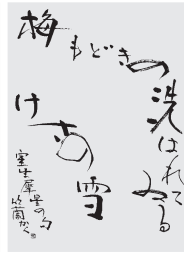 梅もどきの
洗はれて
ゐる
けさの雪
室生犀星の句
かく